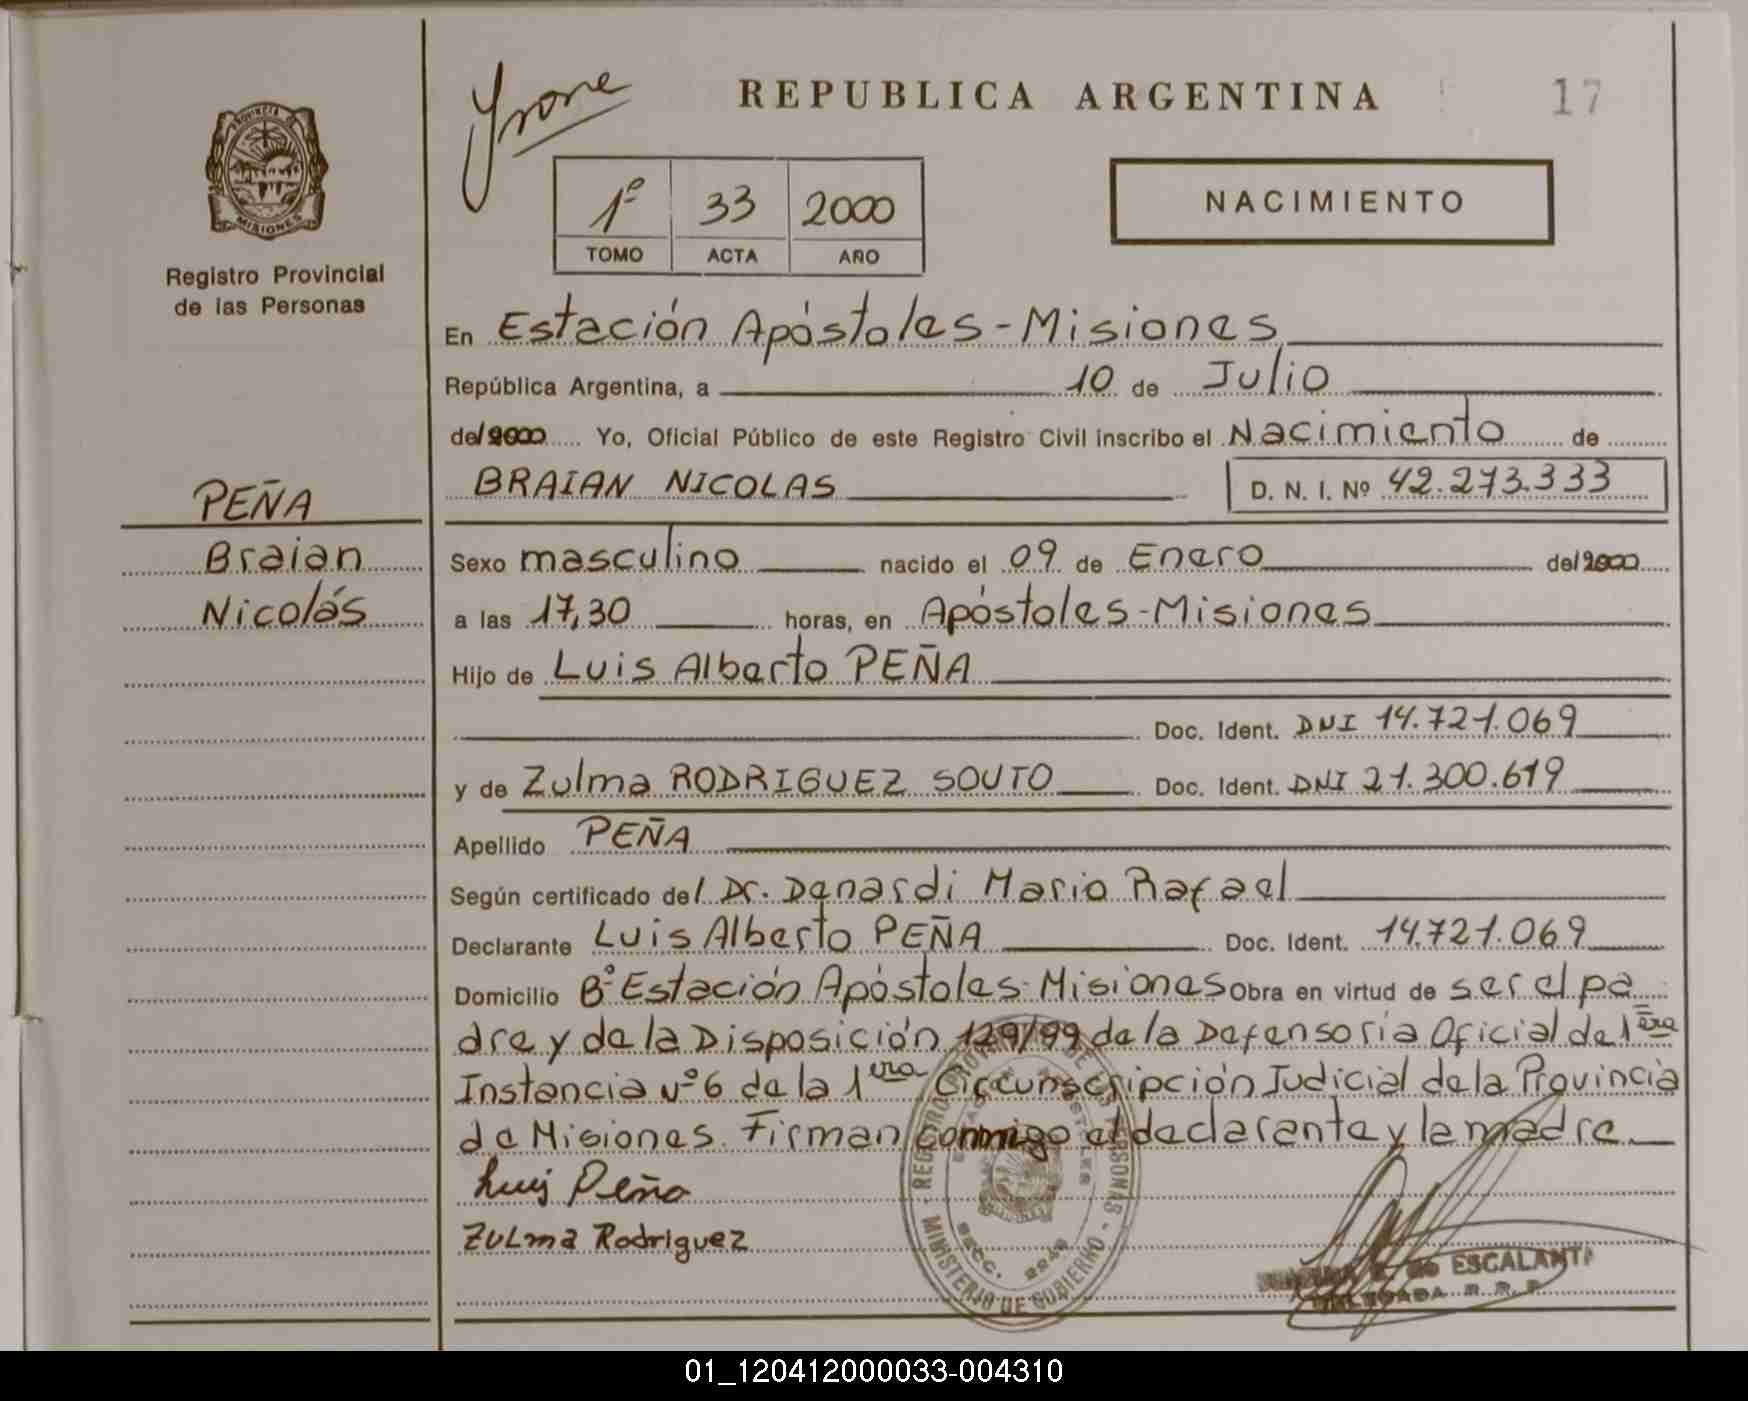 Yvone
REPUBLICA ARGENTINA
17
PROVINCIA DE
MISIONES
Registro Provincial
de las Personas
1º 33 2000
TOMO ACTA AÑO
NACIMIENTO
En Estación Apóstoles - Misiones
República Argentina, a 10 de Julio
del 2000 Yo, Oficial Público de este Registro Civil inscribo el Nacimiento de
BRAIAN NICOLAS D. N. I. Nº 42.273.333
PEÑA
Braian
Nicolás
Sexo masculino nacido el 09 de Enero del 2000
a las 17,30 horas, en Apóstoles - Misiones
Hijo de Luis Alberto PEÑA
Doc. Ident. DNI 14.721.069
y de Zulma RODRIGUEZ SOUTO Doc. Ident. DNI 21.300.619
Apellido PEÑA
Según certificado del Dr. Denardi Mario Rafael
Declarante Luis Alberto PEÑA Doc. Ident. 14.721.069
Domicilio Bº Estación Apóstoles - Misiones Obra en virtud de ser el pa
dre y de la Disposición 129/99 de la Defensoría Oficial de 1era
Instancia Nº 6 de la 1era Circunscripción Judicial de la Provincia
de Misiones. Firman conmigo el declarante y la madre
Luis Peña
Zulma Rodriguez
REGISTRO PROVINCIAL DE LAS PERSONAS - MINISTERIO DE GOBIERNO
ESTACION APOSTOLES
SECC.
de ESCALANTE
DELEGADA R. P. P.
01_120412000033-004310